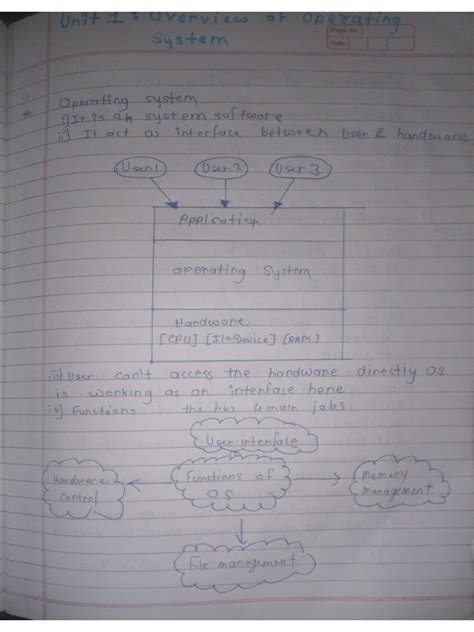 Unit 1 : Overview of Operating
System
Page No.
Date
Operating system
i) It is an system software
ii) It act as interface between User & hardware
User 1 User 2 User 3
Application
operating System
Hardware
[CPU] [I/O Device] [RAM]
iii) User can't access the hardware directly OS
is working as an interface here,
iv) Functions : the has 4 main jobs
User interface
Hardware Control
Functions of OS
Memory Management
File manegment